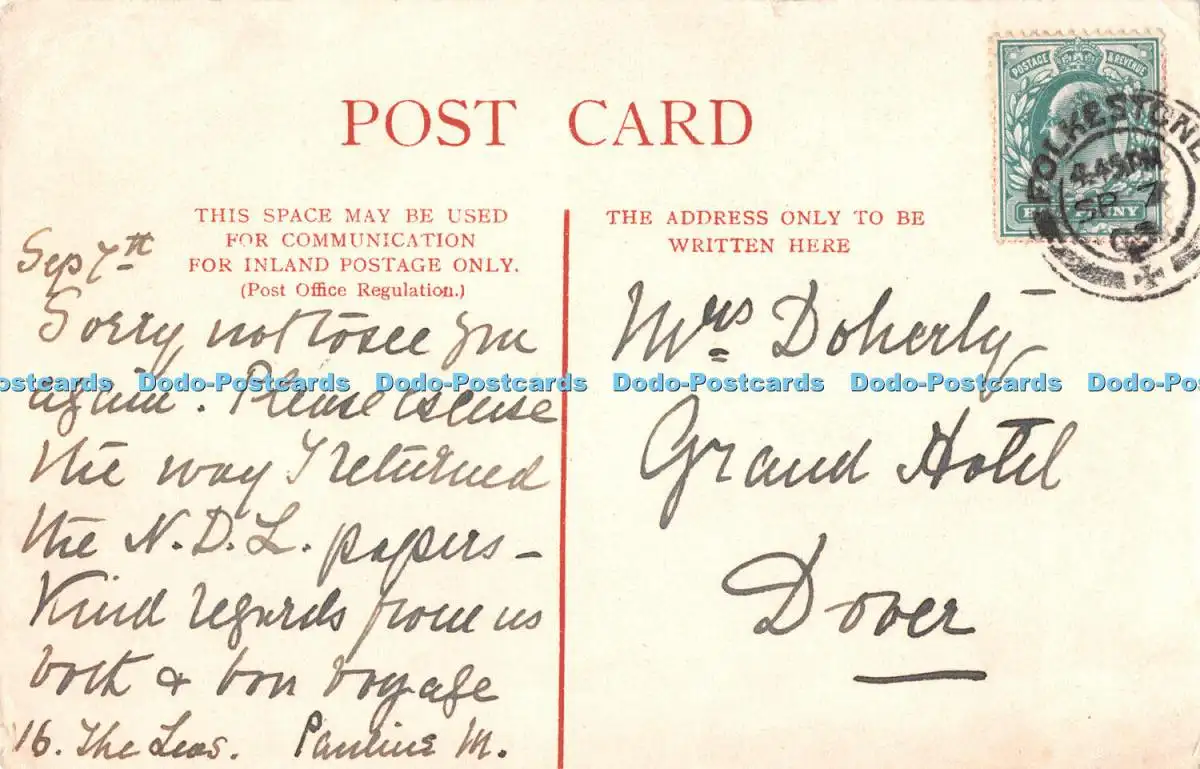 POST CARD
POSTAGE & REVENUE
FOLKESTONE
4.45PM
SP 7
THIS SPACE MAY BE USED
FOR COMMUNICATION
FOR INLAND POSTAGE ONLY.
(Post Office Regulation.)
Sep 7th
Sorry not to see you
again. Please excuse
the way I returned
the N.D.L. papers –
Kind regards from us
both & bon voyage
16. The Leas. Pauline M.
THE ADDRESS ONLY TO BE
WRITTEN HERE
Mrs Doherty
Grand Hotel
Dover
Dodo-Postcards Dodo-Postcards Dodo-Postcards Dodo-Postcards Dodo-Postcards